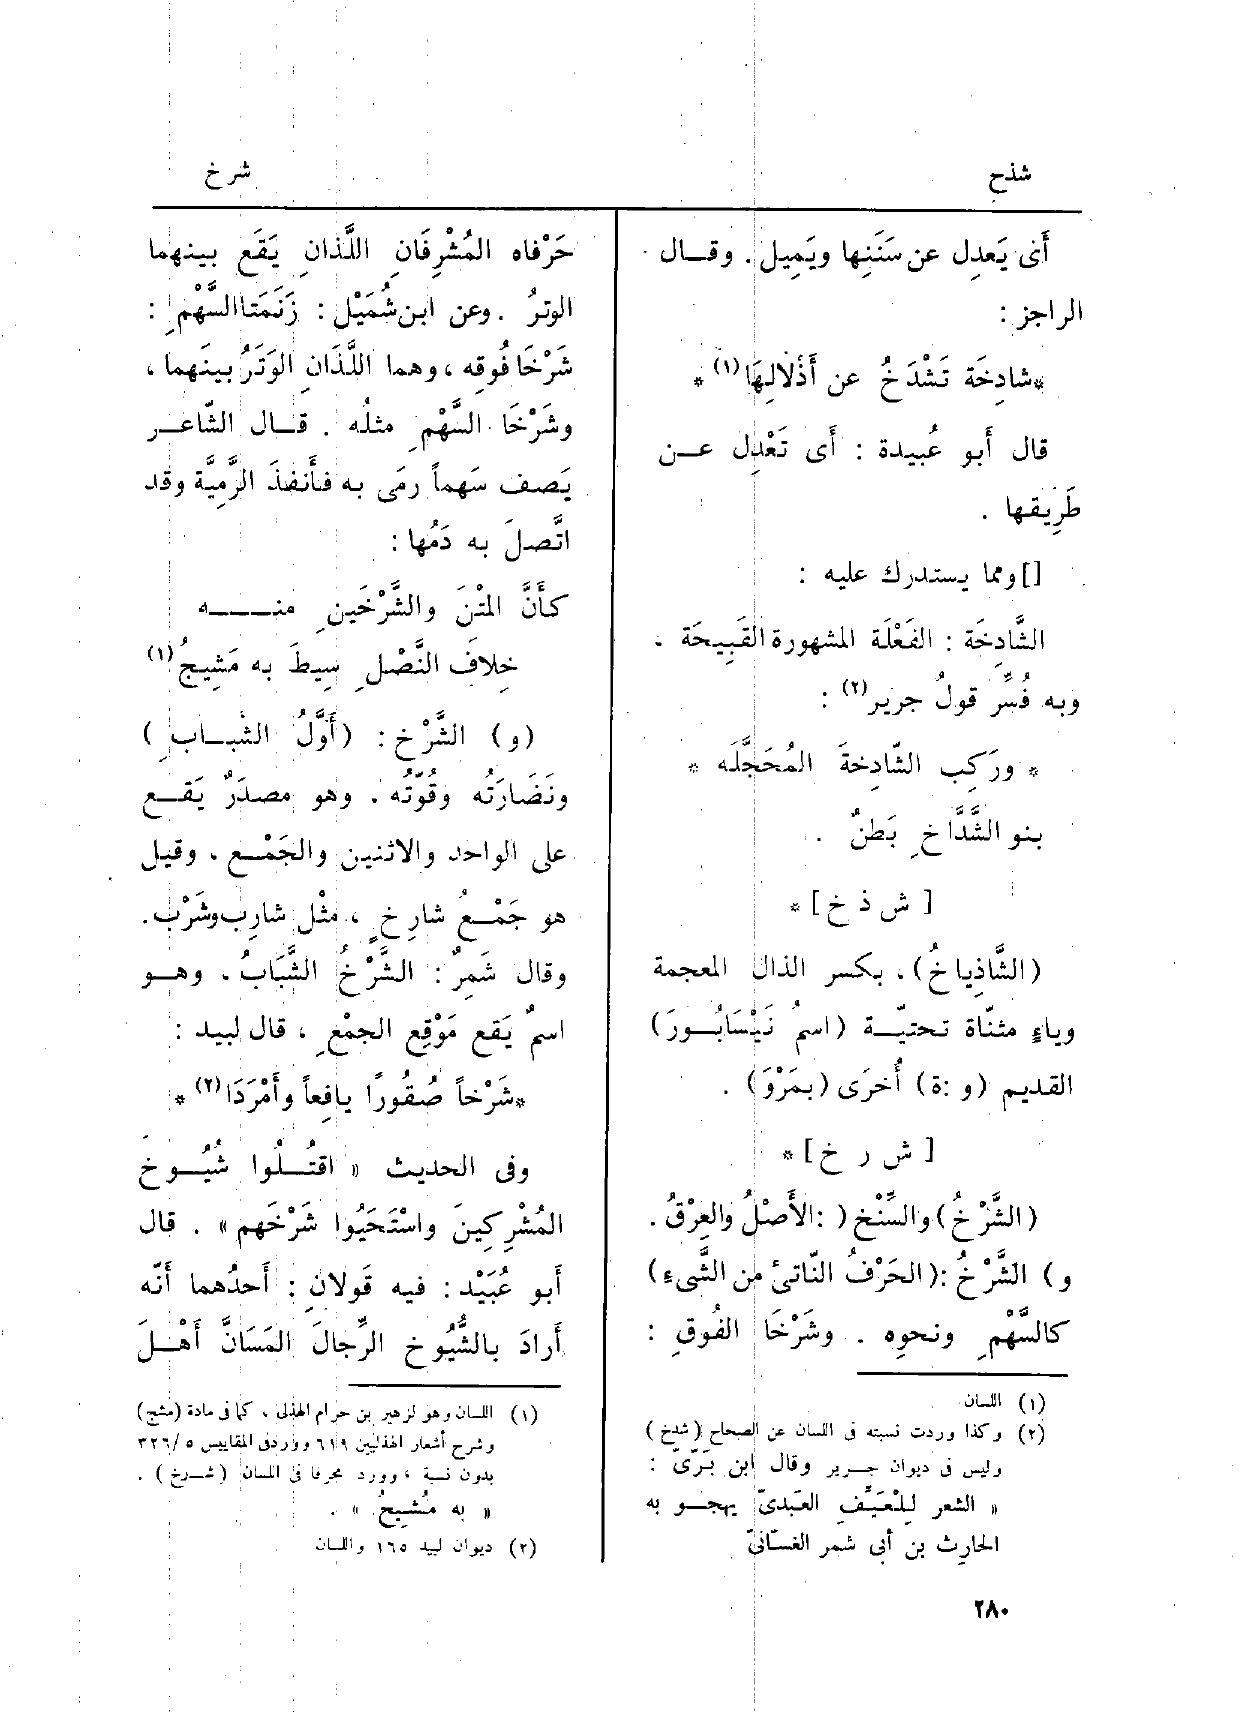 شذخ
شرخ
أَى يَعدِل عن سَنَنِها ويَمِيل . وقــال
الراجز :
*شادِخَة تَشْدَخُ عن أَذْلالِهَا (١) *
قال أَبو عُبيدة : أَى تَعْدِل عــن
طَرِيقها .
[] ومما يستدرك عليه :
الشَّادِخَة : الفَعْلَة المشهورة القَبِيحَة .
وبه فُسِّر قولُ جرير (٢) :
* ورَكِب الشّادِخةَ المُحَجَّلَه *
بنو الشَّدَّاخِ بَطنٌ .
[ ش ذ خ ] *
(الشَّاذِياخُ) ، بكسر الذال المعجمة
وياءٍ مثنّاة تحتيّـة (اسمُ نَيْسَابُــورَ)
القديم (و :ة) أُخرَى (بمَرْوَ) .
[ ش ر خ ] *
(الشَّرْخُ) والسِّنْخ ( :الأَصْلُ والعِرْقُ .
و) الشَّرْخُ :(الحَرْفُ النّاتئُ من الشَّىء)
كالسَّهْمِ ونحوِه . وشَرْخَا الفُوقِ :
(١) اللسان
(٢) وكذا وردت نسبته فى اللسان عن الصحاح (شدخ)
وليس فى ديوان جــرير وقال ابن بَرّىّ :
« الشعر لِلْعَيِّفِ العَبدىّ يهجــو به
الحارِث بن أَبى شمر الغسّانىّ
حَرْفاه المُشْرِفَانِ اللَّذانِ يَقَع بينهما
الوترُ . وعن ابن شُمَيْل : زَنَمَتا السَّهْمِ :
شَرْخَا فُوقِه ، وهما اللَّذَانِ الوَتَرُ بينَهما ،
وشَرْخَا السَّهْمِ مثلُه . قــال الشّاعــر
يَصف سَهماً رمَى به فأَنفذَ الرَّمِيَّة وقد
اتَّصلَ به دَمُها :
كأَنَّ المَتْنَ والشَّرْخَينِ منــــه
خِلافَ النَّصْلِ سِيطَ به مَشِيجُ (١)
(و) الشَّرْخ : (أَوَّلُ الشبــاب)
ونَضَارَتُه وقُوّتُه . وهو مصدَرٌ يَقــع
على الواحد والاثنين والجَمْــع . وقيل
هو جَمْــعُ شارِخٍ ، مثْل شارِب وشَرْب.
وقال شَمِرٌ : الشَّرْخُ الشَّبَابُ . وهــو
اسمٌ يَقع مَوْقِع الجمْعِ ، قال لبيد :
*شَرْخاً صُقُورًا يافِعاً وأَمْرَدَا (٢) *
وفى الحديث « اقتُــلُوا شُيُــوخَ
المُشْرِكِينَ واسْتَحْيُوا شَرْخَهم » . قال
أَبو عُبَيْد : فيه قَولانِ : أَحدُهما أَنّه
أَرادَ بالشُّيُوخِ الرِّجالَ المَسَانَّ أَهْــلَ
(١) اللسان وهو لزهير بن حرام الهذلى ، كما فى مادة (مشج)
وشرح أشعار الهذليين ٦١٩ وورد فى المقاييس ٥/٣٢٦
بدون نسبة ، وورد محرفا فى اللسان (شــرخ) .
« به مُشِيحُ » .
(٢) ديوان لبيد ١٦٥ واللسان
٢٨٠